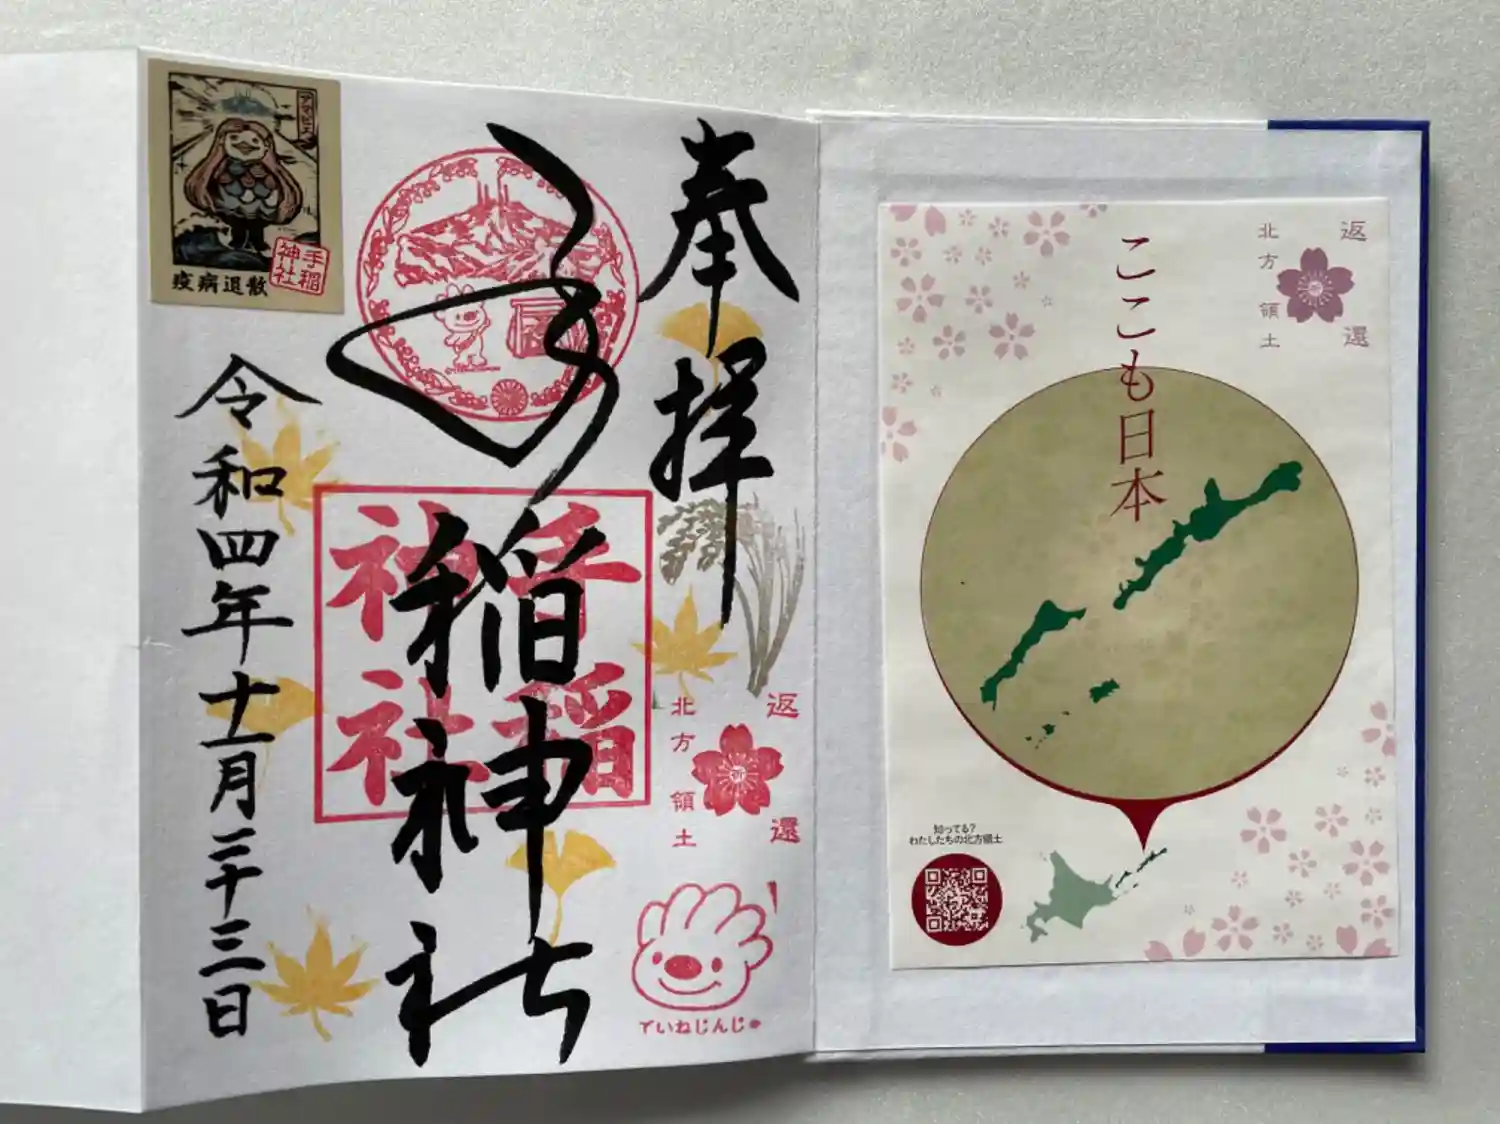 奉拝
手稲神社
令和四年十一月二十三日
手稲
神社
アマビエ
疫病退散
手稲
神社
返還
北方領土
ていねじんじゃ
ここも日本
返還
北方領土
知ってる?
わたしたちの北方領土